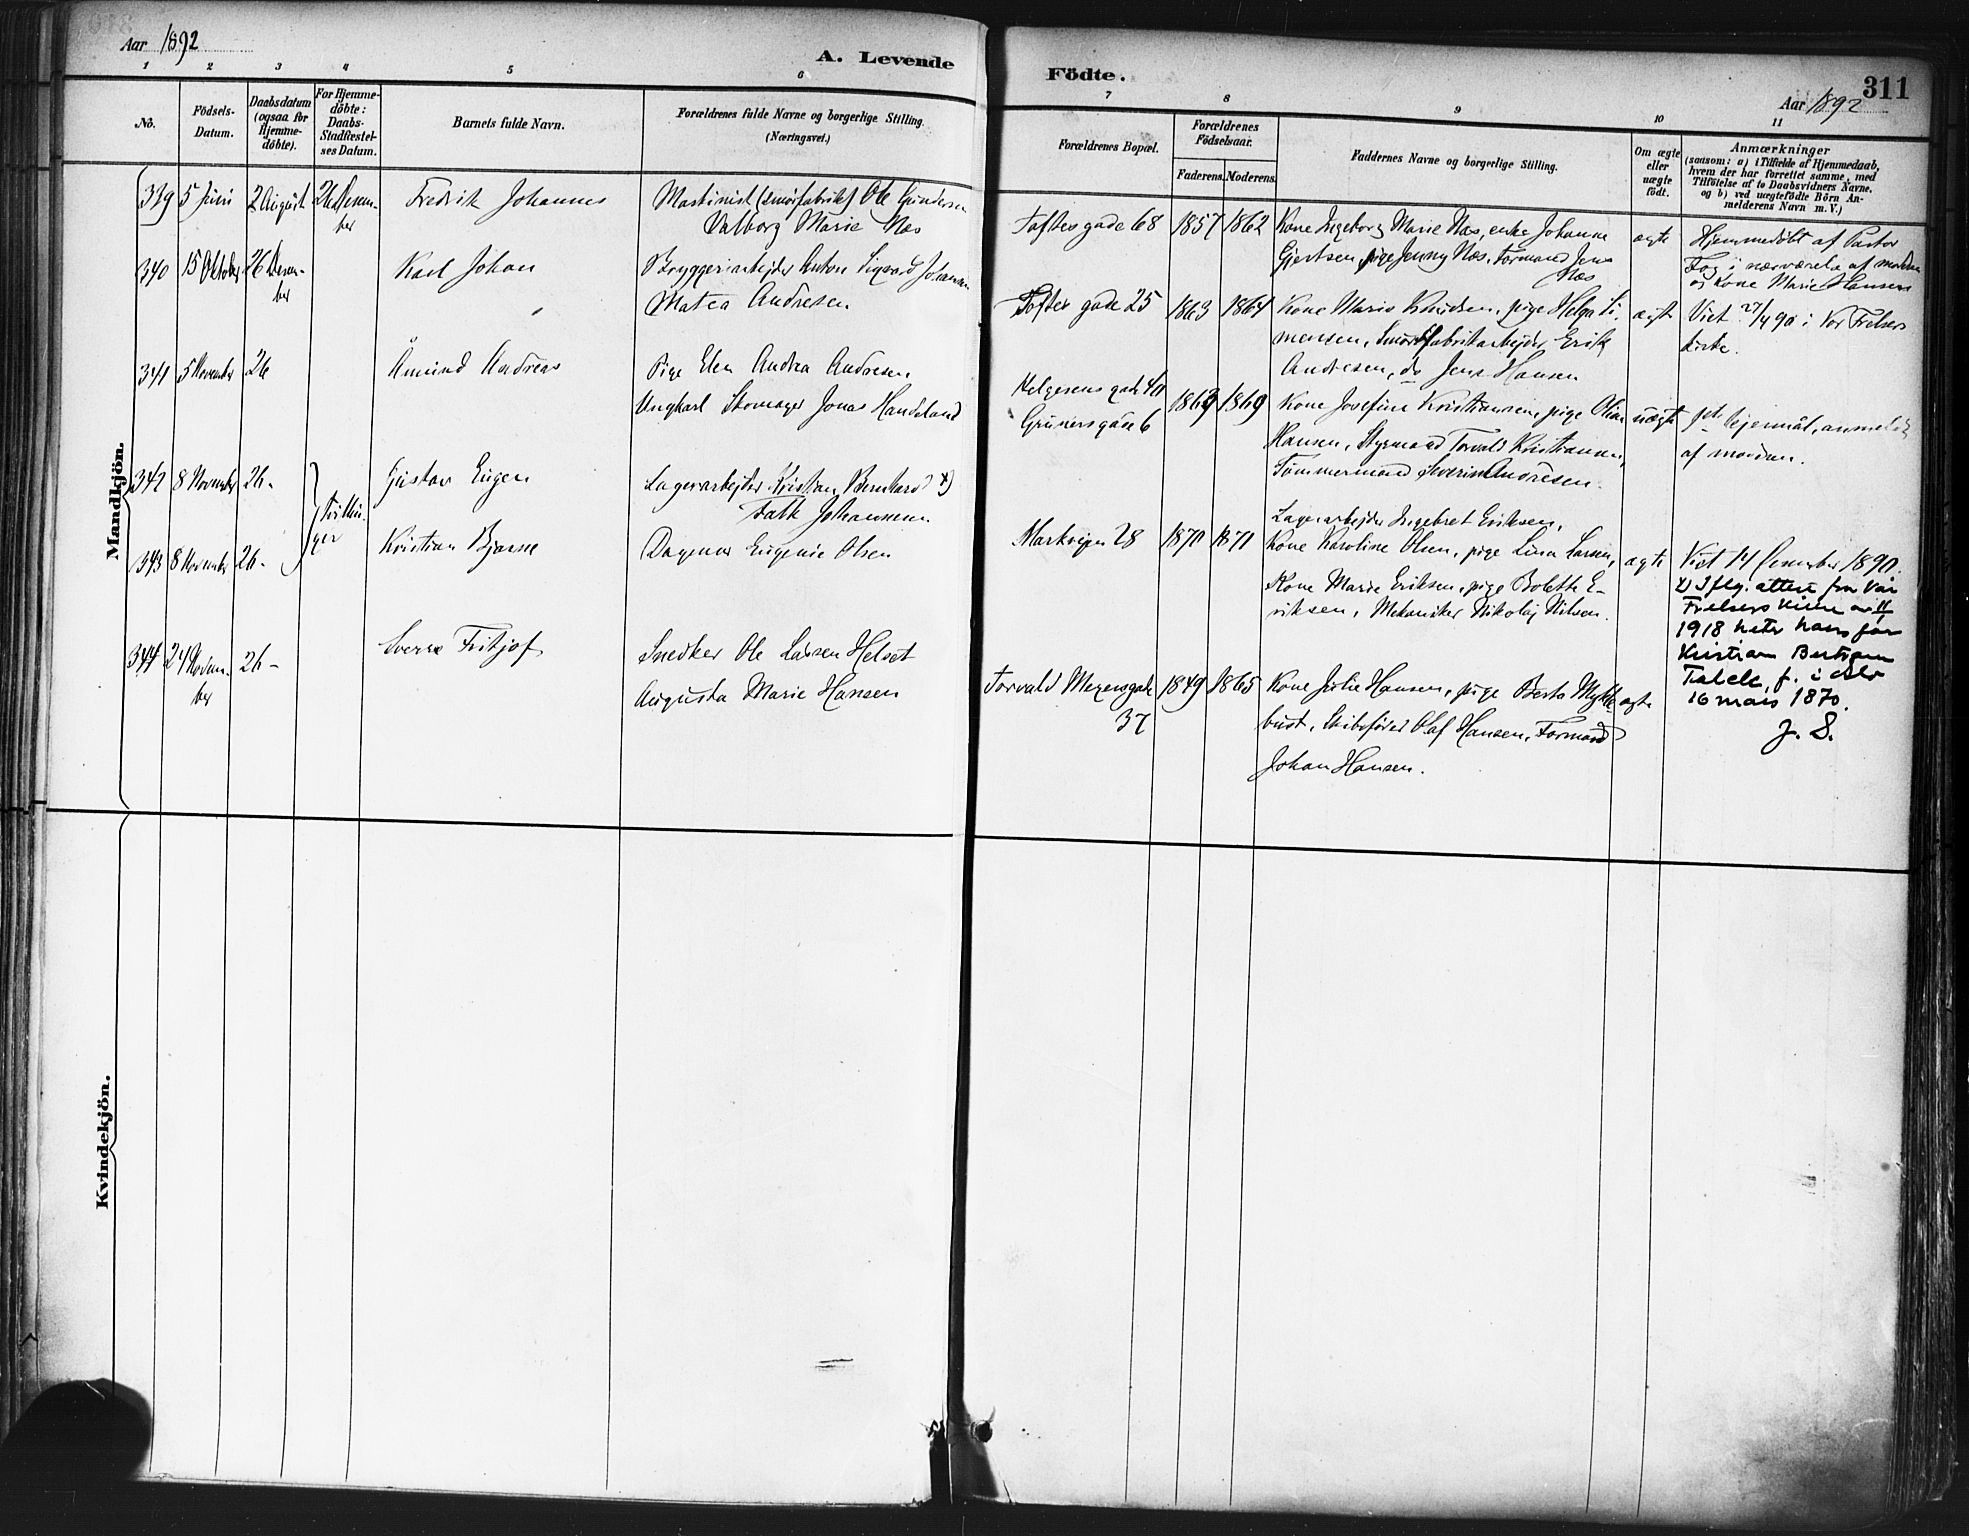 Aar 1892
A. Levende
Födte.
311
Aar 1892
1 2 3 4 5 6
7 8 9 10 11
No.
Födsels-
Datum.
Daabsdatum
(ogsaa for
Hjemme-
döbte).
For Hjemme-
döbte:
Daabs-
Stadfæstel-
ses Datum.
Barnets fulde Navn.
Forældrenes fulde Navne og borgerlige Stilling.
(Næringsvei.)
Forældrenes Bopæl.
Forældrenes
Födselsaar.
Faderens. Moderens.
Faddernes Navne og borgerlige Stilling.
Om ægte
eller
uægte
födt.
Anmærkninger
(saasom: a) i Tilfælde af Hjemmedaab,
hvem der har forrettet samme, med
Tilföielse af to Daabsvidners Navne.
og b) ved uægtefödte Börn An-
melderens Navn m. V.)
Mandkjön.
339
5 Juni
2 August
26 Decem-
ber
Fredrik Johannes
Maskinist (Smørfabrik) Ole Gundersen
Valborg Marie Næs
Toftes gade 68
1857
1862
Kone Ingeborg Marie Næs, enke Johanne
Gjertsen, pige Jenny Næs, Formand Jens
Næs
ægte
Hjemmedöbt af Pastor
i nærværelse af moderen
og kone Marie Hansen
340
15 Oktober
26 Decem-
ber
Karl Johan
Bryggeriarbejder Anton Sigvard Johansen
Matea Andresen
Toftes gade 25
1863
1864
Kone Marie Knudsen, pige Helga Si-
mensen, Smørfabrikarbejder Erik
Andresen, do Jens Hansen
ægte
Viet 27/4 90 i Vor Frelsers
kirke.
341
5 November
26
Åmund Andreas
Pige Elen Andrea Andresen
Ungkarl Skomager Jonas Handeland
Helgesens gade 40
Grünersgade 6
1869
1869
Kone Josefine Kristiansen, pige Oline
Hansen, Styrmand Torvald Kristiansen,
Tømmermand Severin Andresen.
uægte
1ste lejermål, anmeldt
af moderen.
342
8 November
26 -
Tvillin-
ger
Gustav Eugen
Lagerarbejder Kristian Bernhard x)
Falk Johannesen
343
8 November
26 -
Kristian Bjarne
Dagmar Eugenie Olsen
Markvejen 28
1870
1871
Lagerarbejder Ingebret Eriksen,
Kone Karoline Olsen, pige Lina Larsen,
Kone Marie Eriksen, pige Bolette E-
riksen, Mekaniker Nikolaj Nilsen.
ægte
Viet 14 December 1890.
x) Iflg. attest fra Vår
Frelsers kirke av
1918 heter hans far
Kristian Bertram
f. i Oslo
16 mars 1870.
J. S.
344
24 Novem-
ber
26 -
Sverre Fritjof
Snedker Ole Larsen Helset
Augusta Marie Hansen
Torvald Meyersgade
37
1849
1865
Kone Julie Hansen, pige Berta Mykle-
bust, Skibsfører Olaf Hansen, Formand
Johan Hansen.
ægte
Kvindekjön.